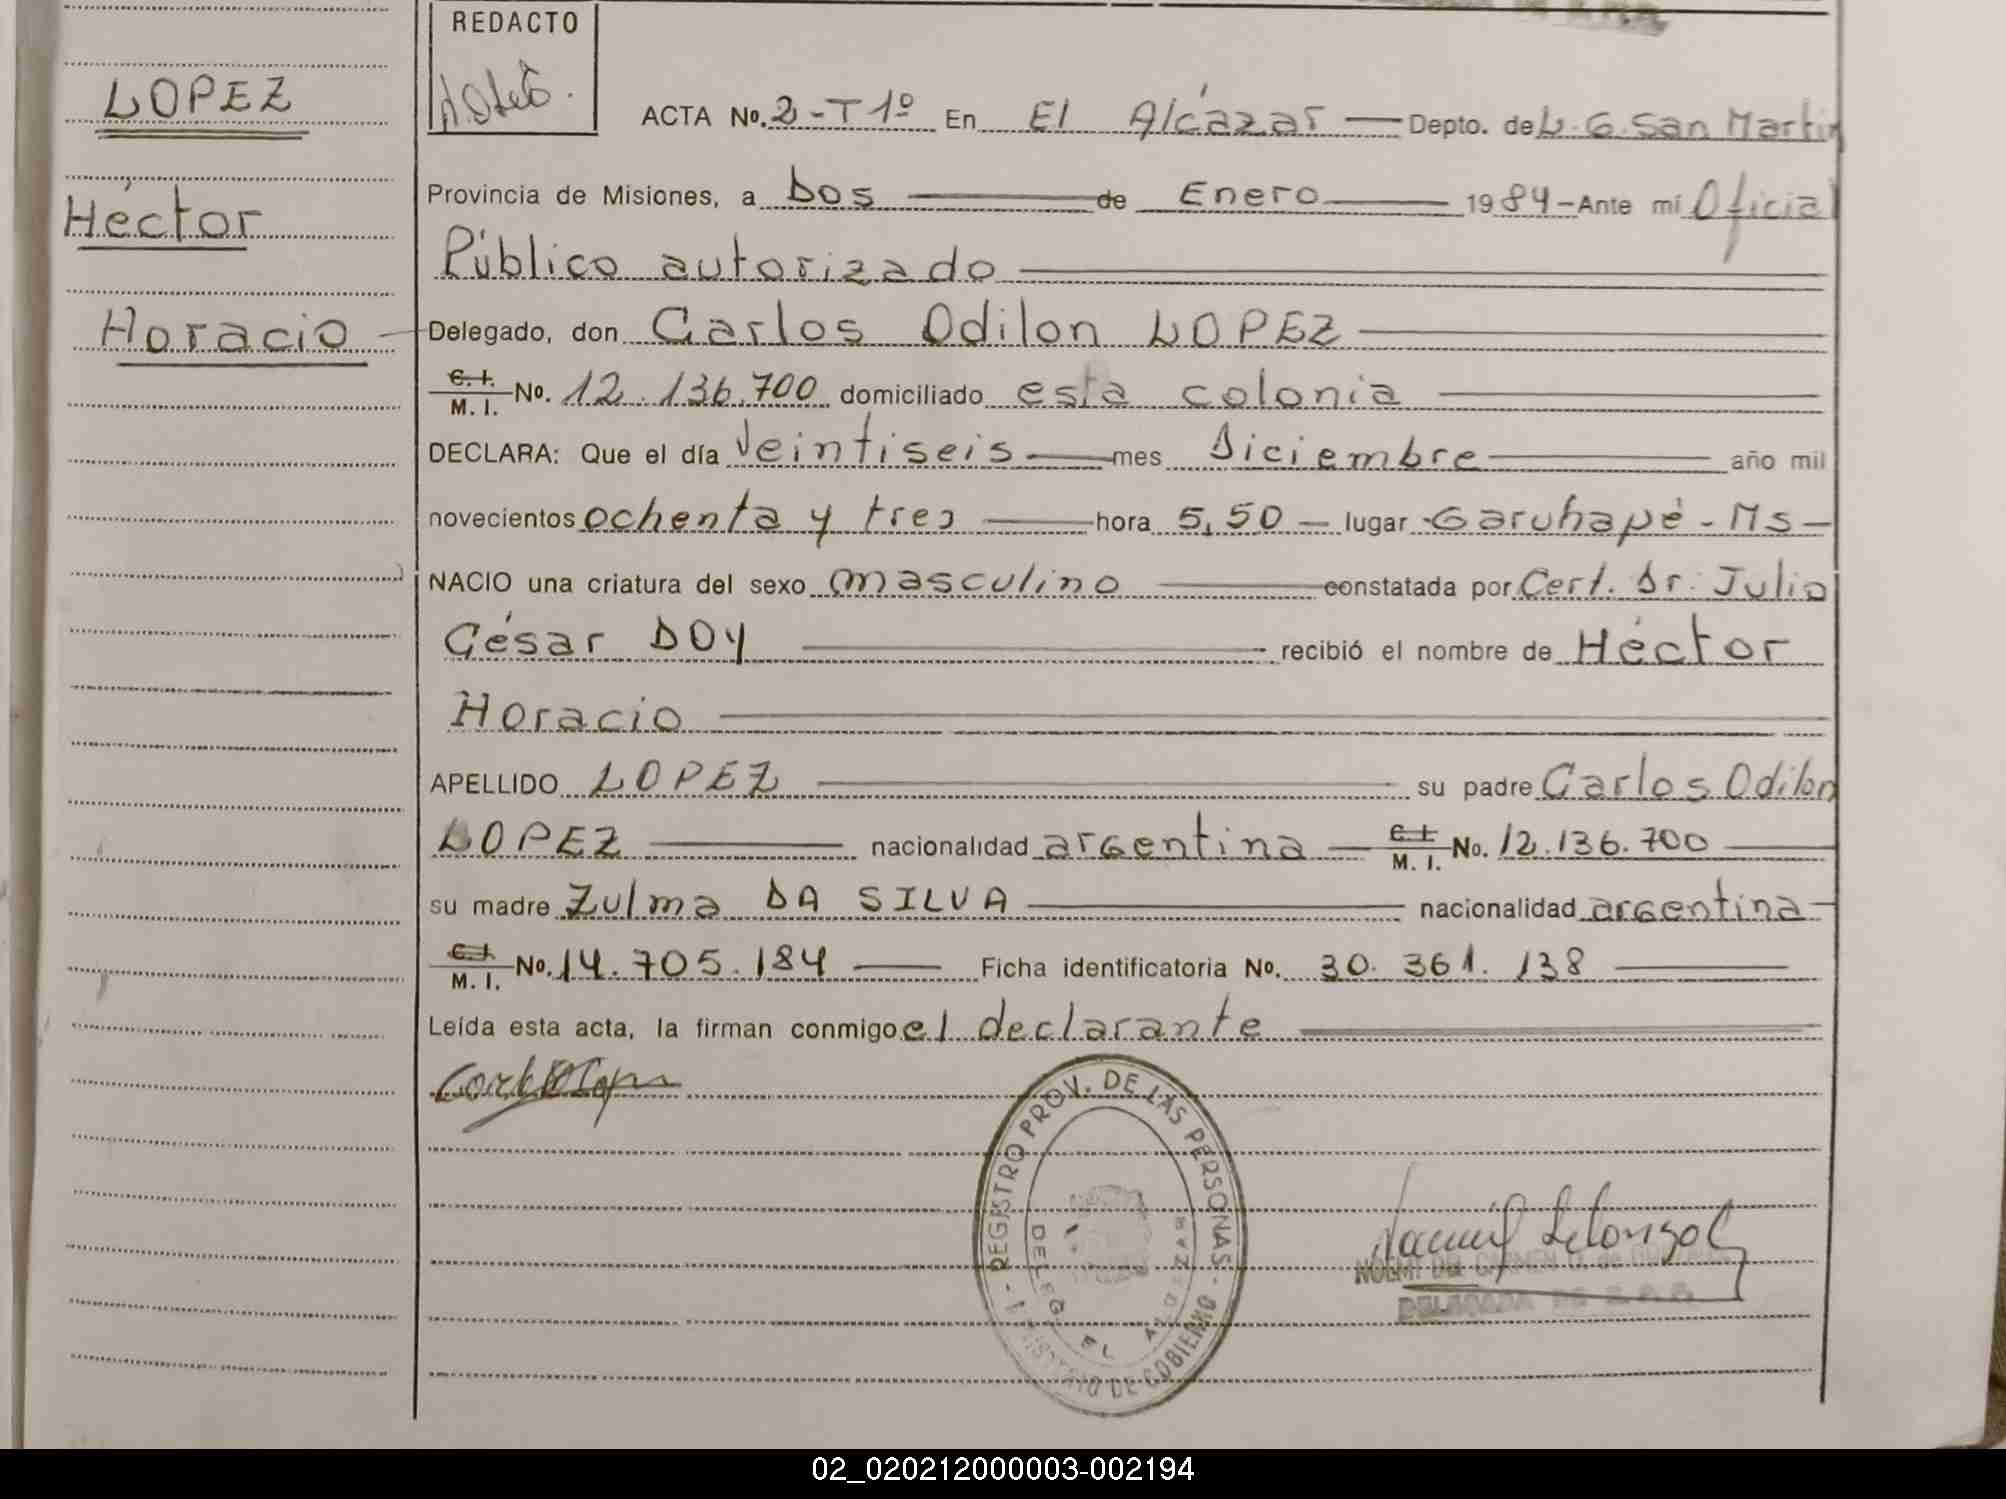 LOPEZ
Héctor
Horacio
REDACTO
ACTA No. 2-T 1º En El Alcázar Depto. de L. G. San Martin
Provincia de Misiones, a Dos de Enero 1984 - Ante mí Oficial
Público autorizado
Delegado, don Carlos Odilon LOPEZ
C. I. M. I. No. 12.136.700 domiciliado esta colonia
DECLARA: Que el día Veintiseis mes Diciembre año mil
novecientos ochenta y tres hora 5,50 lugar Garuhapé - Ms
NACIO una criatura del sexo masculino constatada por Cert. Dr. Julio
César DOY recibió el nombre de Héctor
Horacio
APELLIDO LOPEZ su padre Carlos Odilon
LOPEZ nacionalidad argentina C. I. M. I. No. 12.136.700
su madre Zulma DA SILVA nacionalidad argentina
C. I. M. I. No. 14.705.184 Ficha identificatoria No. 30.361.138
Leída esta acta, la firman conmigo el declarante
REGISTRO PROV. DE LAS PERSONAS - MINISTERIO DE GOBIERNO
DELEG. EL ALCAZAR
NOEMI DEL CARMEN de
DELEGADA
02_020212000003-002194